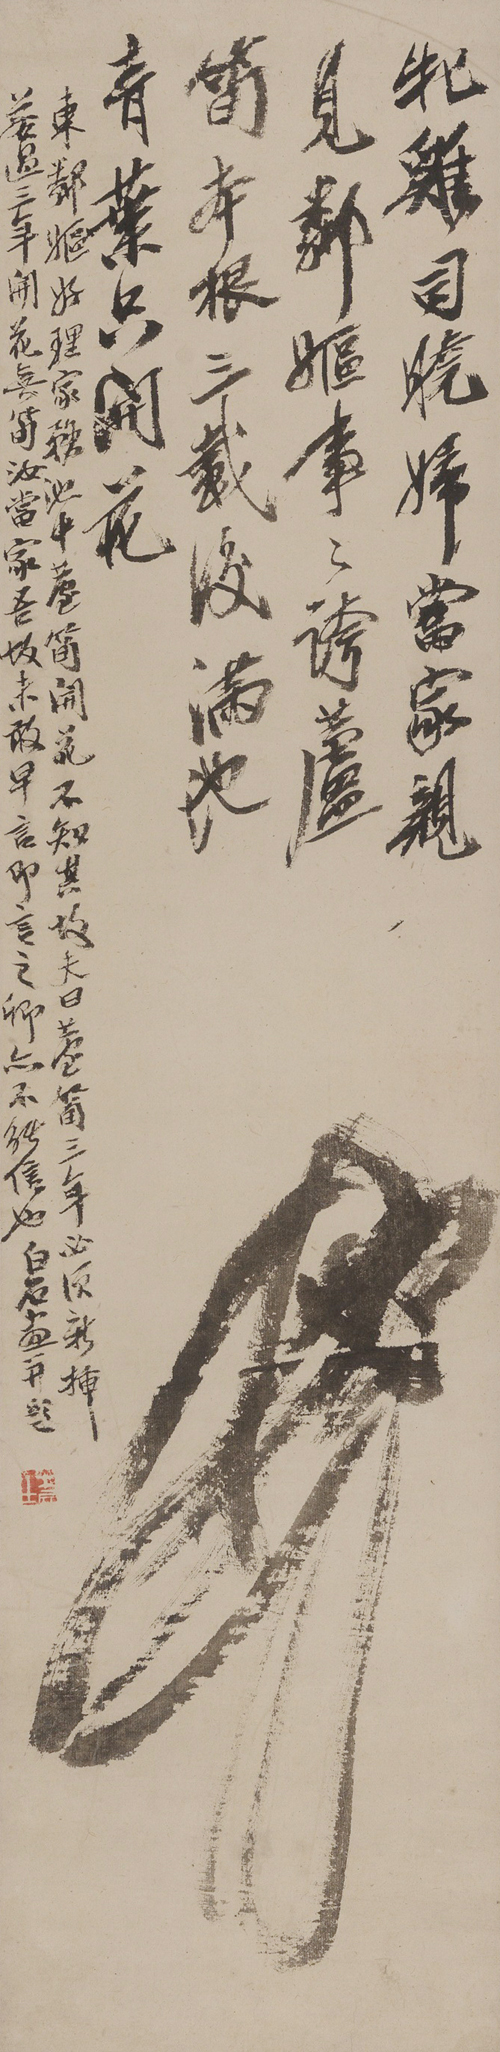 牝雞司曉婦當家親
見鄰嫗事々誇蘆
筍本根三載後滿池
青葉只開花
東鄰嫗好理家務池中蘆筍開花不知其故夫曰蘆筍三年必須新插
若過三年開花無筍汝當家吾故未敢早言即言之卿亦不能信也白石畫并題